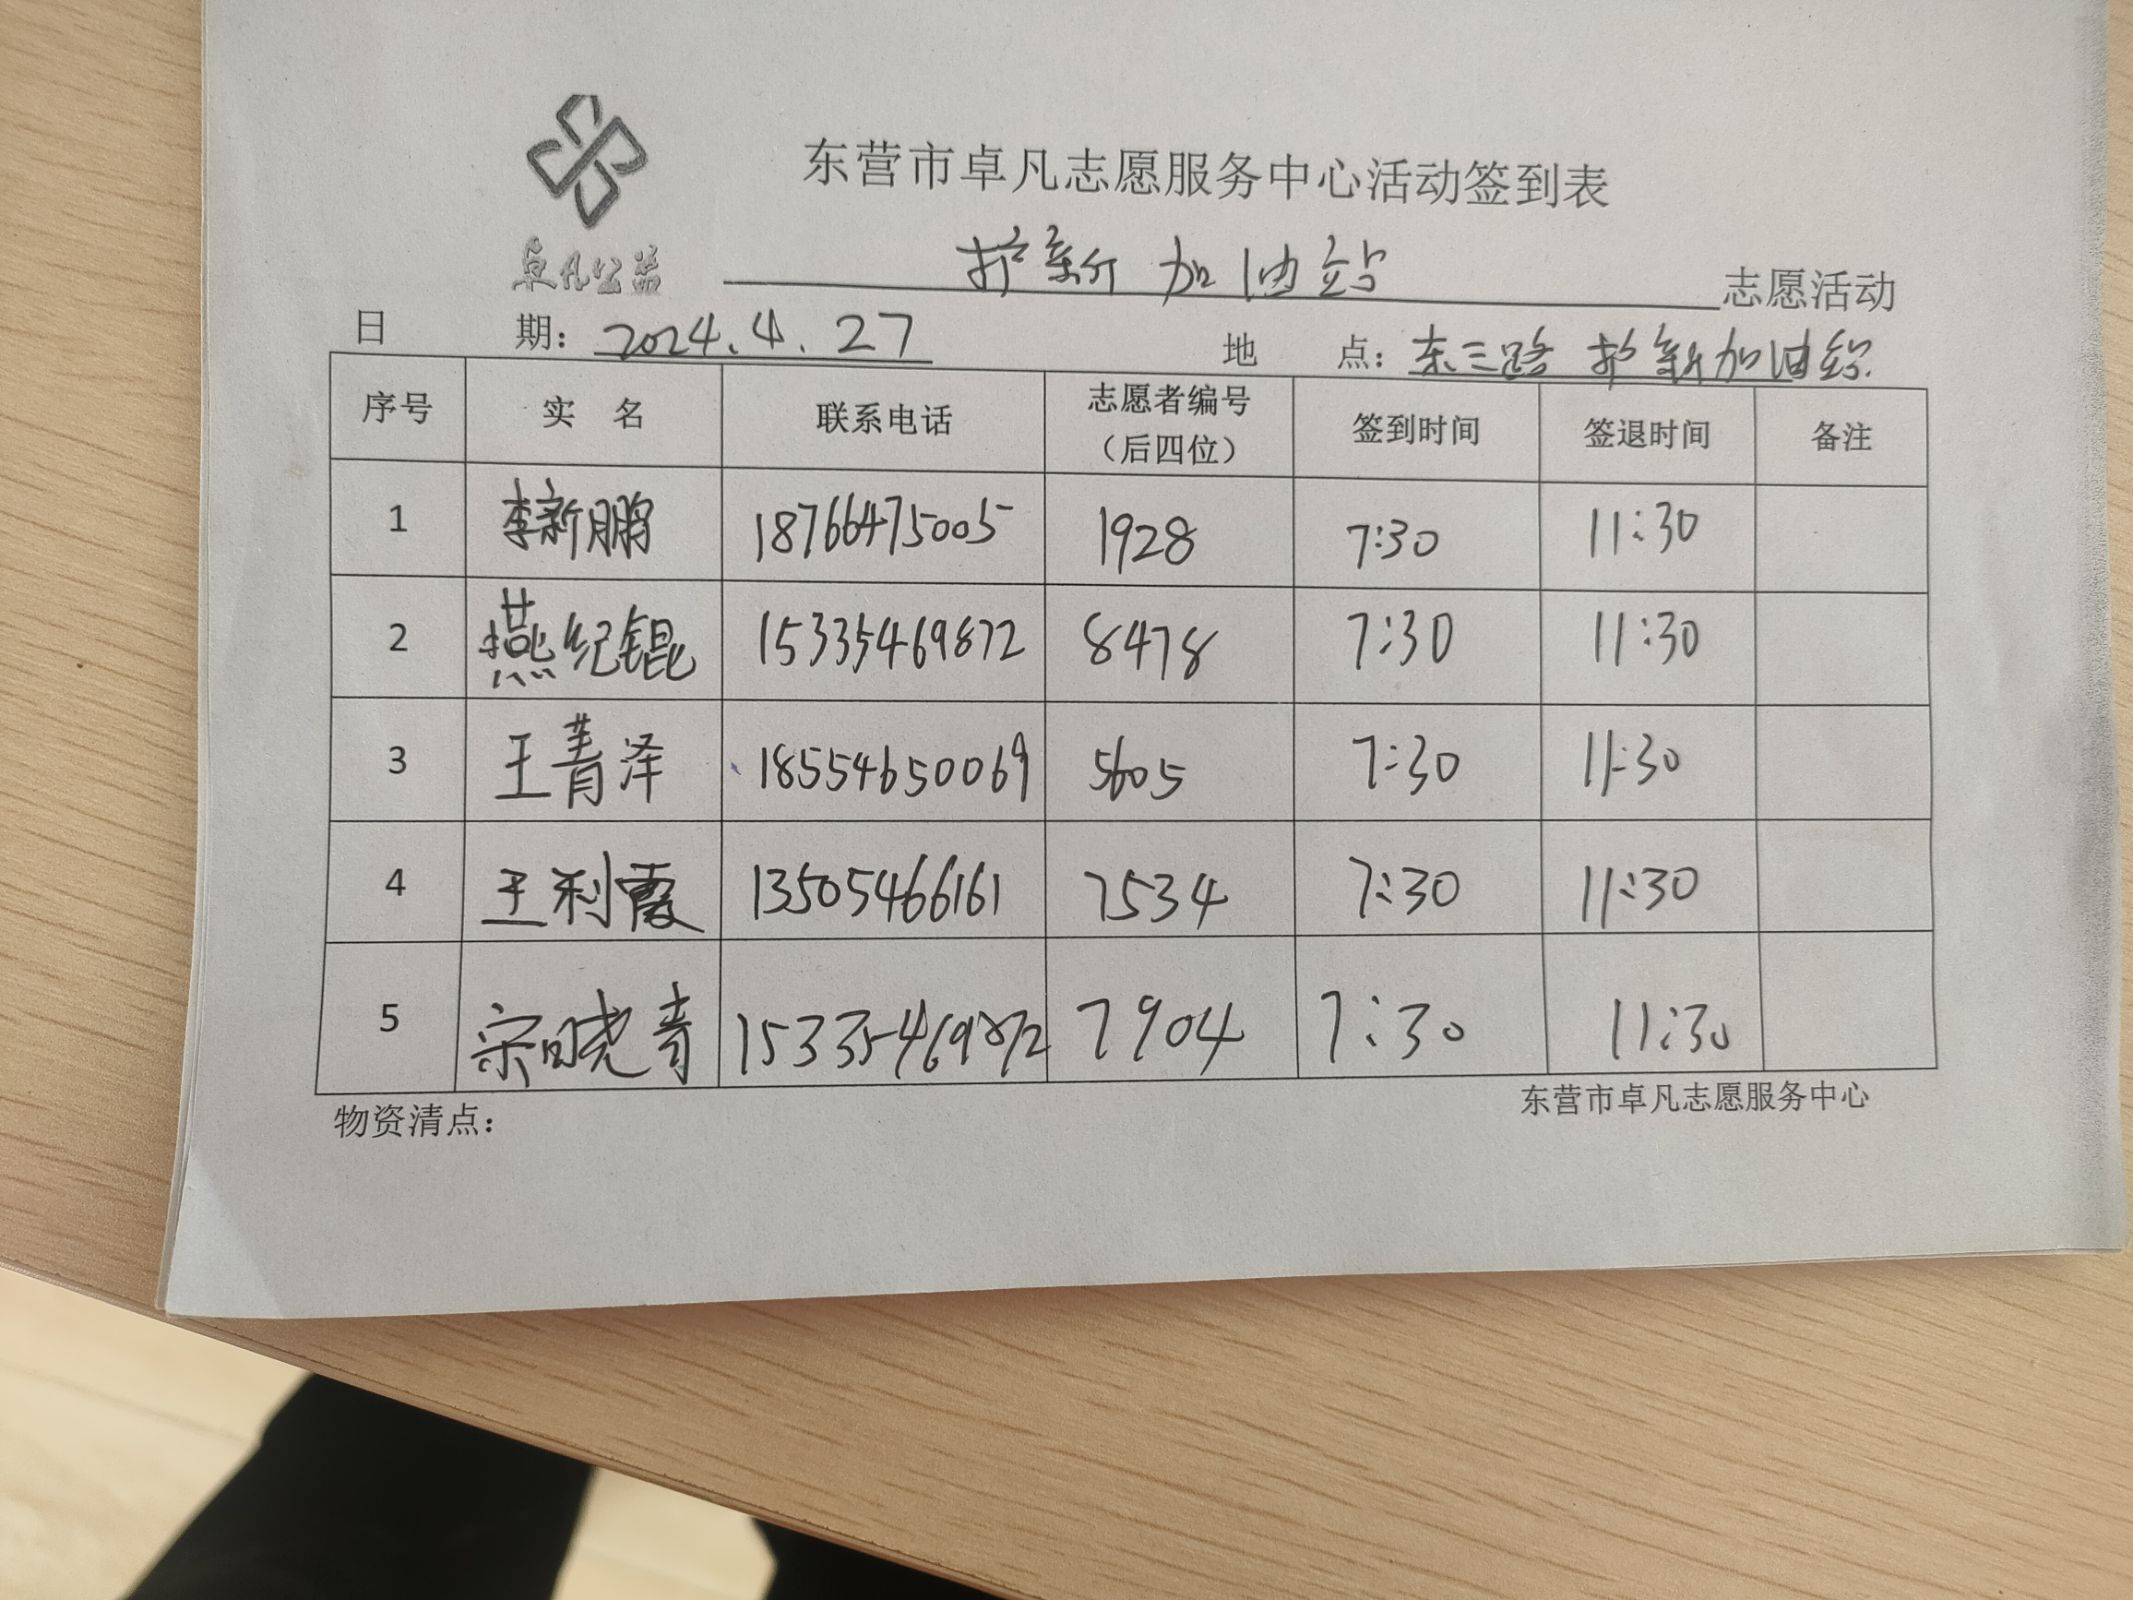 东营市卓凡志愿服务中心活动签到表
卓凡公益
护新加油站 志愿活动
日 期：2024.4.27 地 点：东三路 护新加油站
序号 实 名 联系电话 志愿者编号（后四位） 签到时间 签退时间 备注
1 李新鹏 18766475005 1928 7:30 11:30
2 燕纪锟 15335469872 8478 7:30 11:30
3 王菁泽 18554650069 5605 7:30 11:30
4 王利霞 13505466161 7534 7:30 11:30
5 宋晓青 15335469872 7904 7:30 11:30
物资清点： 东营市卓凡志愿服务中心